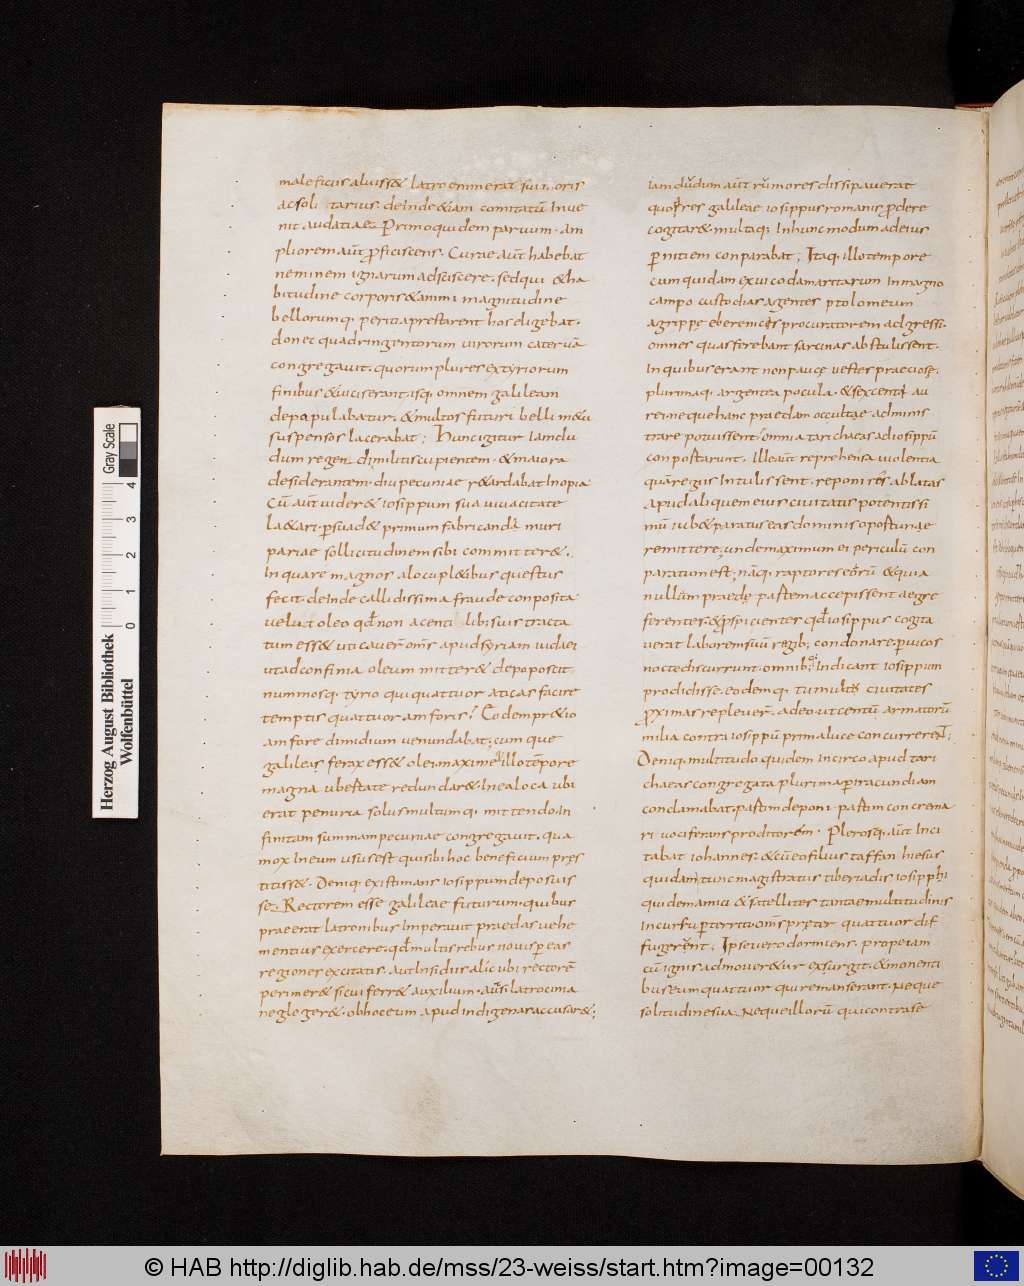 maleficus aluisse& latro enim erat sui moris
ac soli tarius. deinde &iam comitatū Inue
nit audatiae. Primo quidem paruum. Am
pliorem aūt proficiscens. Curae aūt habebat
neminem ignarum adsciscere. sed qui &ha
bitudine corporis &animi magnitudine
bellorumq. peritia prestarent hos eligebat.
donec quadringentorum uirorum cateruā
congregauit. quorum plures ex tyriorum
finibus &uici erant. isq. omnem galileam
depopulabatur. &multos futuri belli m&u
suspensos lacerabat; Hunc igitur Iamdu
dum regem militis cupientem. &maiora
desiderantem. diu pecuniae r&ardabat Inopia
Cū aūt uider& iosippum sua uiuacitate
la&ari. psuad& primum fabricandi muri
patriae sollicitudinem sibi committer&.
In quare magnos alocupl&ibus questus
fecit. deinde callidissima fraude conposita
uelut oleo qđ non a centi libꝫ suis tracta
tum ess& uti cauer& omīs apud syriam iudaei
utad confinia oleum mitter& depoposcit
nummosq. tyrio qui quattuor aticas facite
temptis quattuor amforis; Eodem pr&io
amfore dimidium uenundabat; cum que
galileas ferax ess& olei. maxime illo tēpore
magna ubertate redundar& In ea loca ubi
erat penuria solus multumq. mittendo. In
finitam summam pecuniae congregauit. qua
mox In eum usus est qui sibi hoc beneficium pręs
titiss&. Deniq. existimans iosippum deposuis
se Rectorem esse galileae futurum. quibus
praeerat latronibus Imperauit praedas uehe
mentius exercere. qđ multis rebus nouis p eas
regiones excitatis. Aut Insidiis alicubi rectorē
perimer& sicui ferr& auxilium. aut si latrocinia
negleger&. ob hoc eum apud indigenar accusar&;
Iam dudum aūt rumores dissipauerat
quo fres galileae iosippus romanis pdere
cogitar&. multaq; In hunc modum adeius
pnitiem conparabat; Itaq. illo tempore
cum quidam ex uico damaritarum In magno
campo custodias agentes ptolomeum
agrippę &berenices procuratorem adgressi.
omnes quas ferebant sarcinas abstulissent.
In quibus erant non paucę uestes praeciosę.
plurimaq. argentea pocula. &sexcenti au
rei neque hanc praedam occultae adminis
trare potuissent. omnia tarichaeas ad iosippū
conportarunt. Ille aūt reprehensa uiolentia
quā regiis Intulissent. reponi res ablatas
Apud aliquem eius ciuitatis potentissi
mū iub& paratus eas dominis oportunae
remittere; unde maximum ei periculū con
paratum est; nāq. raptores eorū &quia
nullam praedę partem accepissent aegre
ferentes. &pspicientes qđ iosippus cogita
uerat laborem suū regibꝫ condonare. p uicos
nocte discurrunt. omnibꝫ Indicant iosippum
prodidisse. eodemq. tumultu ciuitates
pximas repleuer. adeo ut centū armatorū
milia contra iosippū prima luce concurrerent;
Deniq. multitudo quidem In circo apud tari
chaeas congregata plurima p iracundiam
conclamabat. partim deponi. partim concrema
ri uociferans proditorem. Plerosq. aūt Inci
tabat iohannes. &cū eo filius saffan hiesus
quidam tunc magistratus tiberiadis. iosipphi
quidem amici &satellites tantae multitudinis
Incursu pterriti omīs pręter quattuor dif
fugerūt. Ipse uero dormiens. propetam
cū ignis admouer&ur exsurgit. &monenti
bus eum quattuor qui remanserant. Neque
solitudine sua. Neque illorū qui contra se
Herzog August Bibliothek
Wolfenbüttel
Gray Scale
0 1 2 3 4
© HAB http://diglib.hab.de/mss/23-weiss/start.htm?image=00132